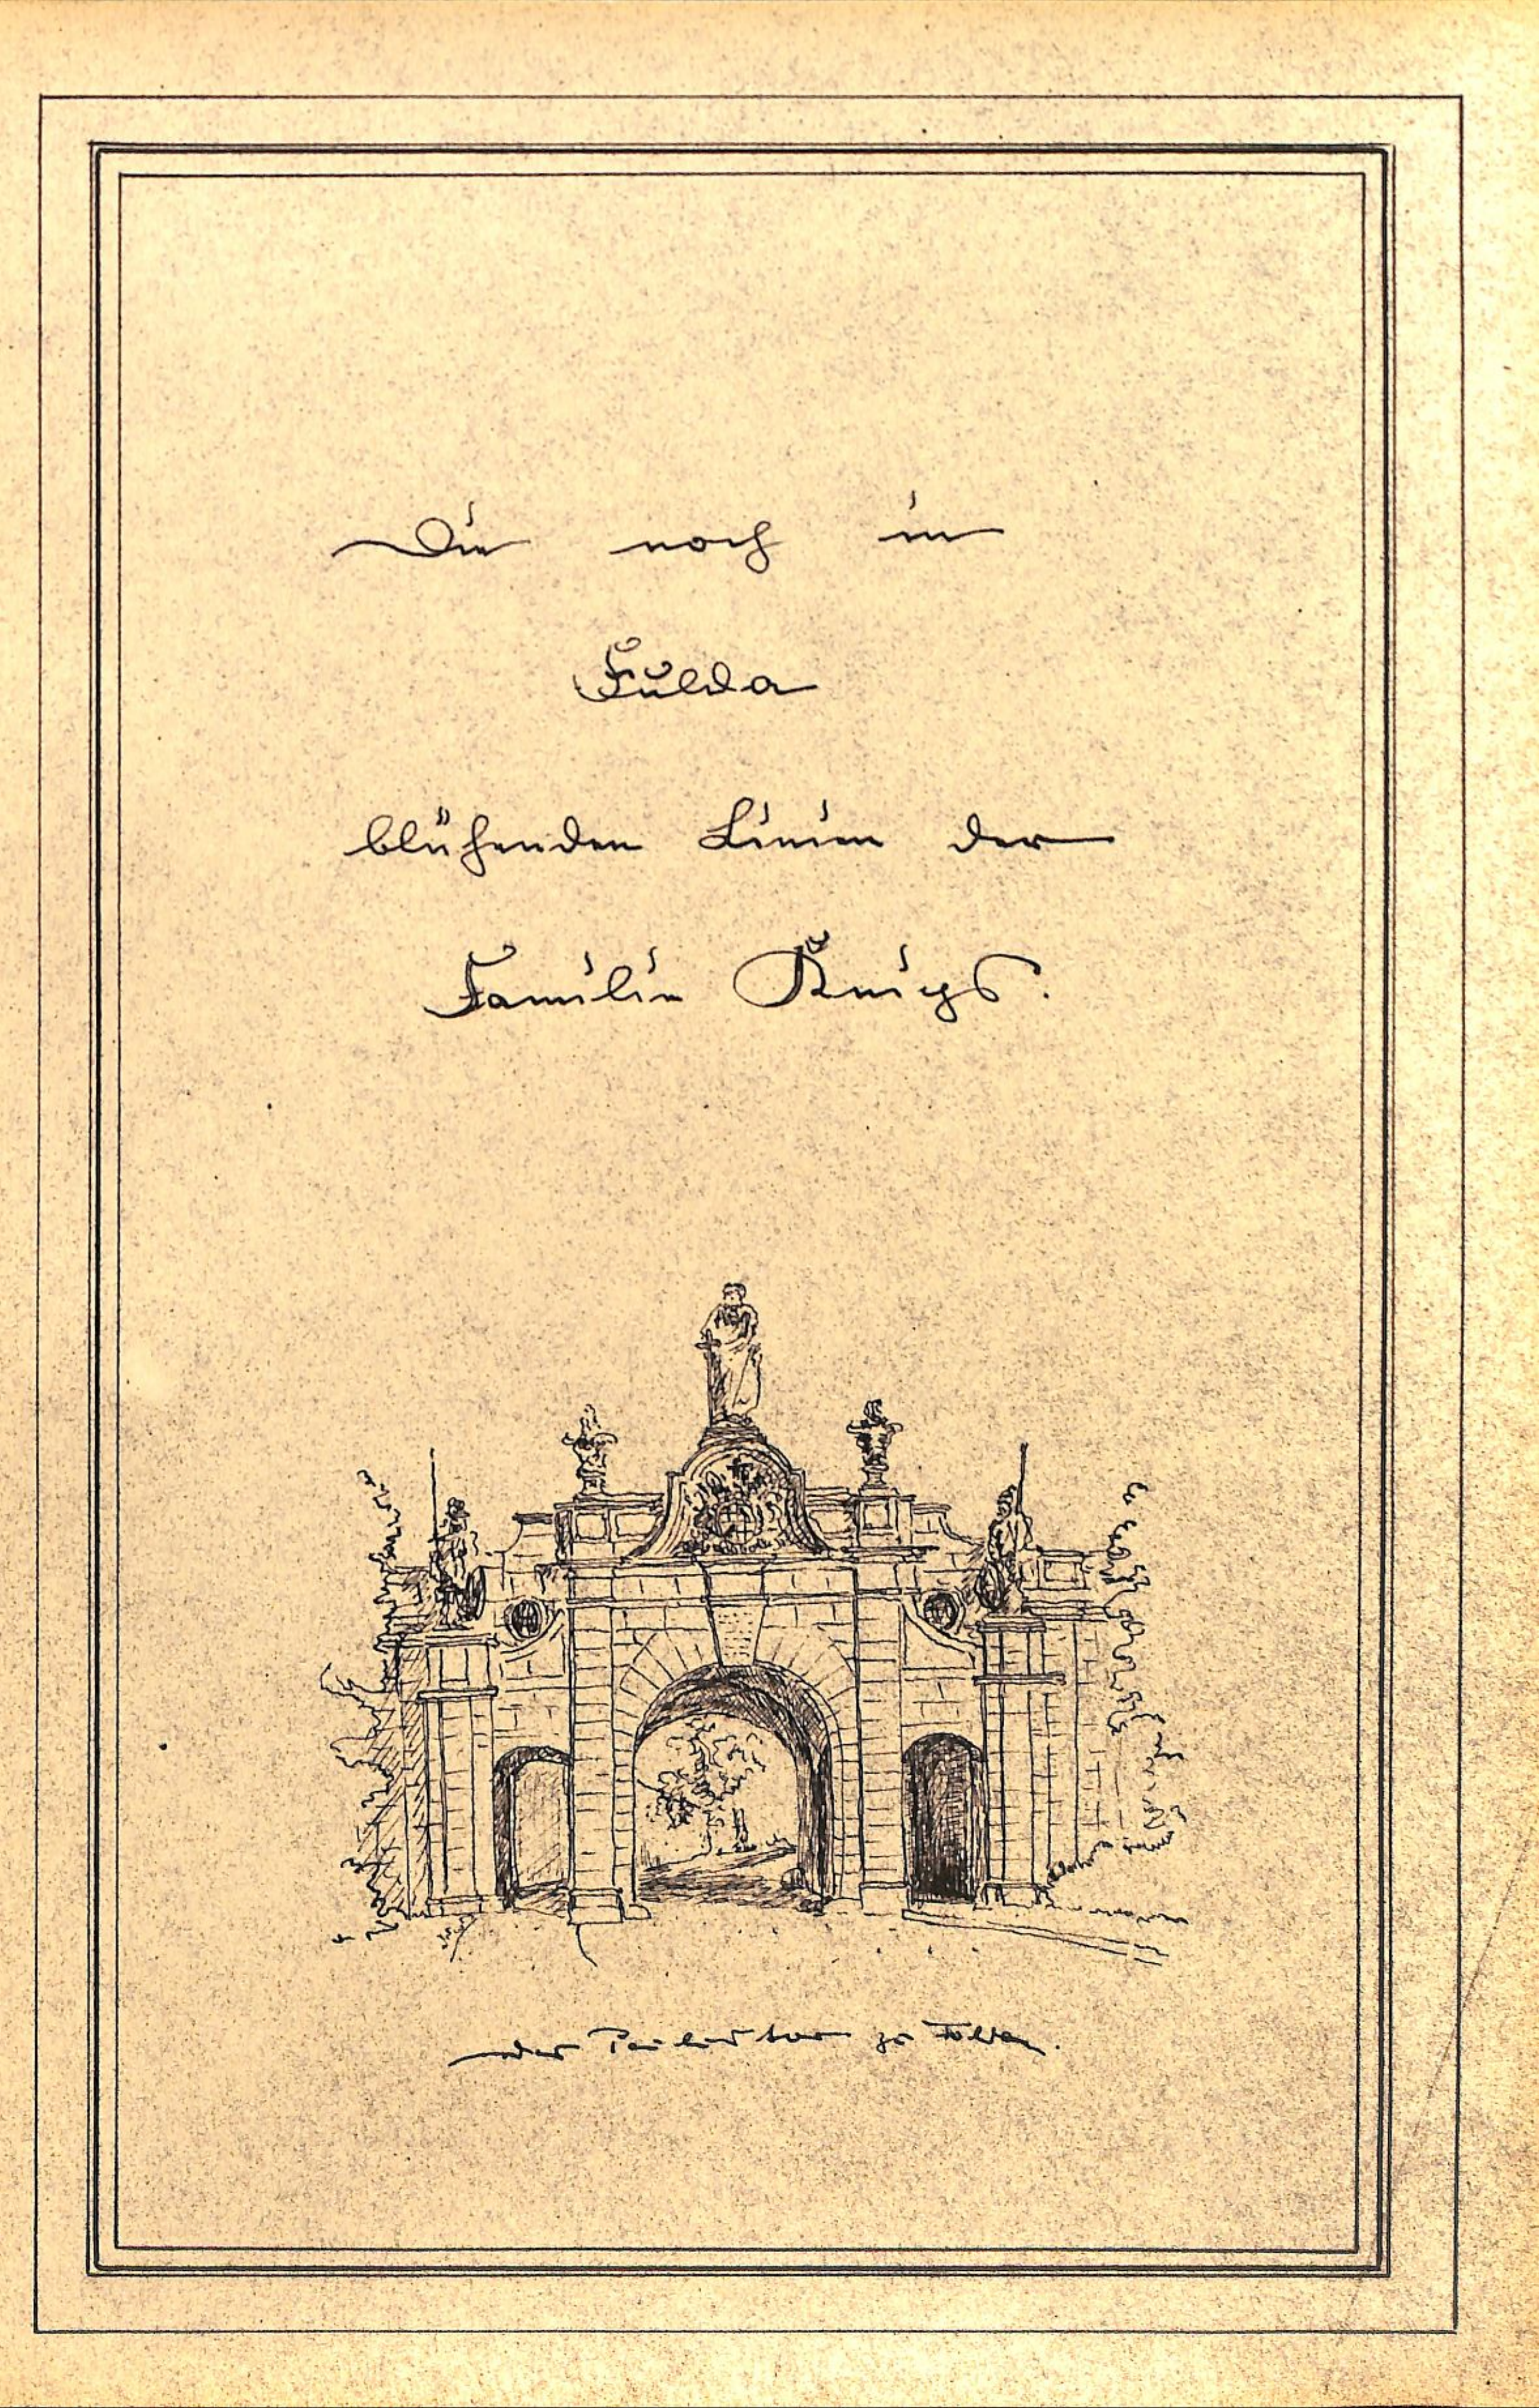 Die noch in
Fulda
blühenden Linien der
Familie Knips.
das Paulustor zu Fulda.